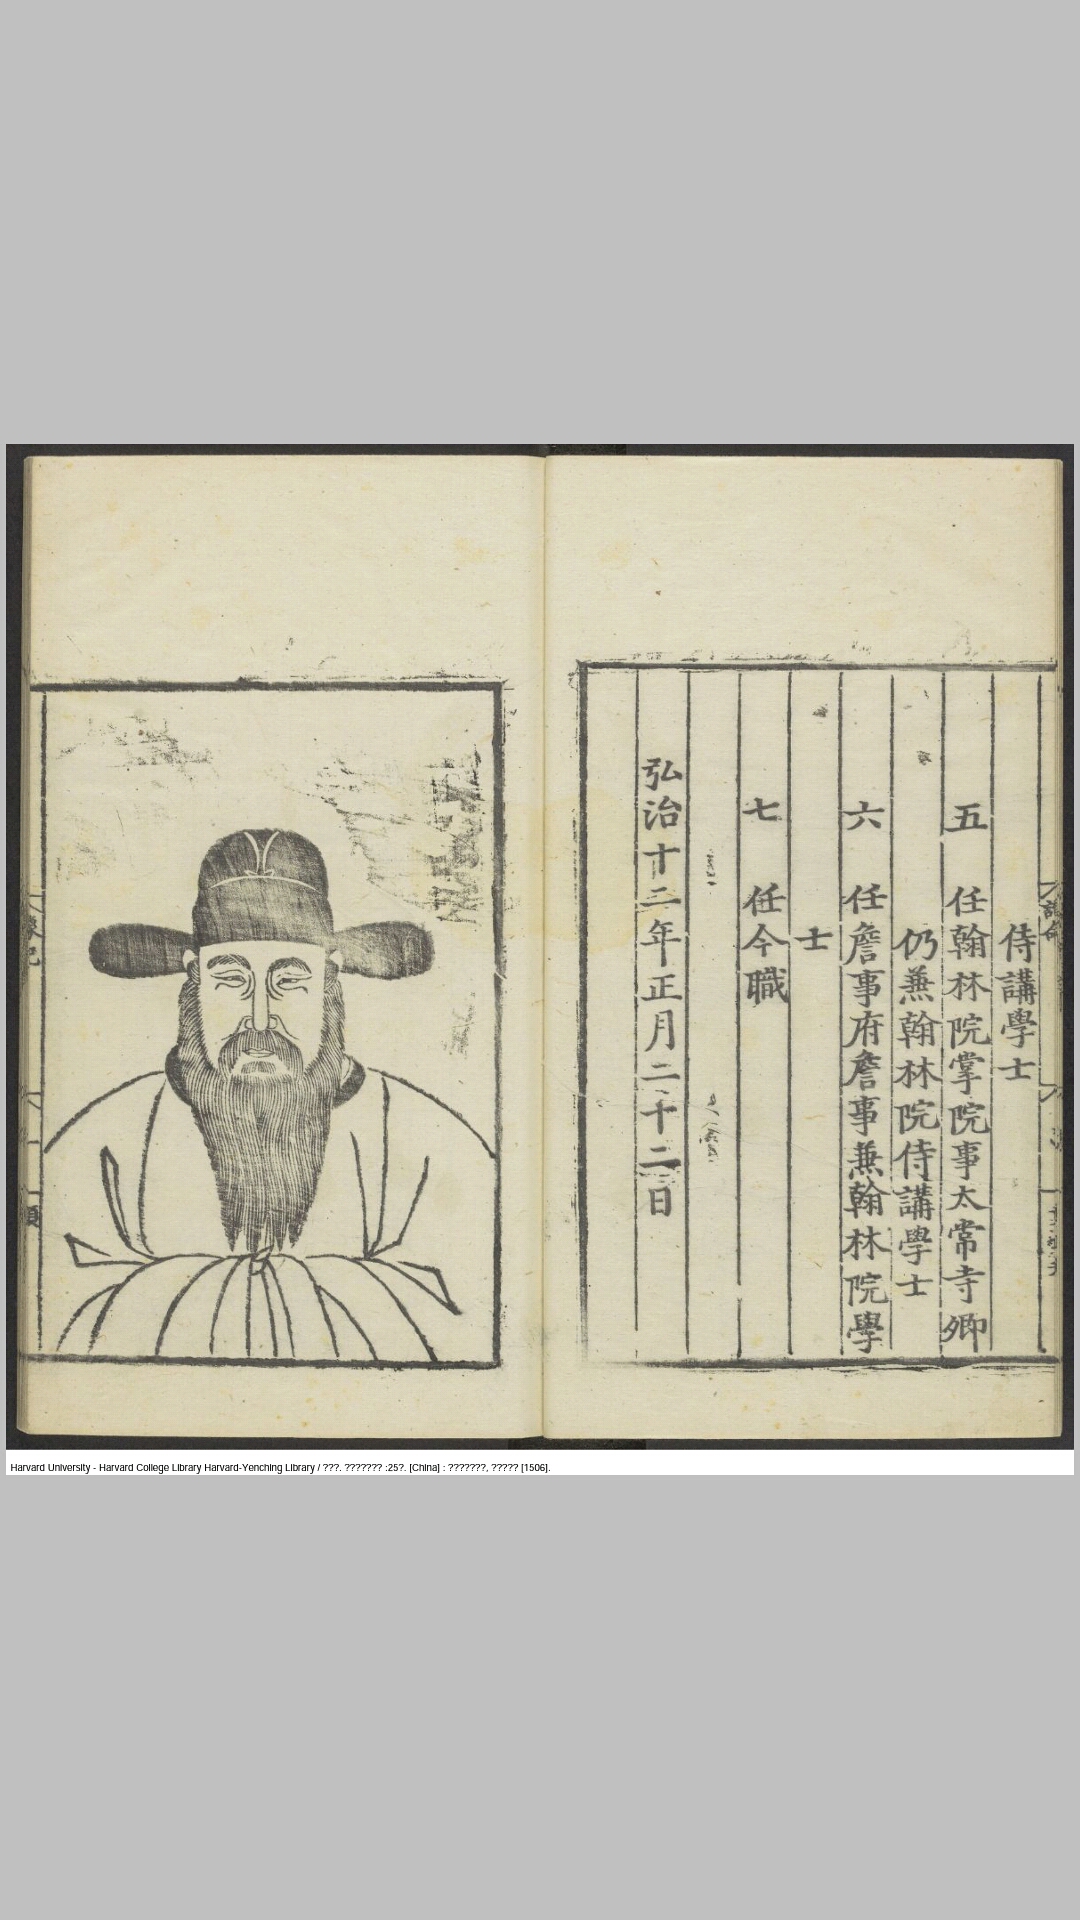 侍講學士
五　任翰林院掌院事太常寺卿
仍兼翰林院侍講學士
六　任詹事府詹事兼翰林院學
士
七　任今職
弘治十二年正月二十二日
Harvard University - Harvard College Library Harvard-Yenching Library / ???. ??????? :25?. [China] : ???????, ????? [1506].